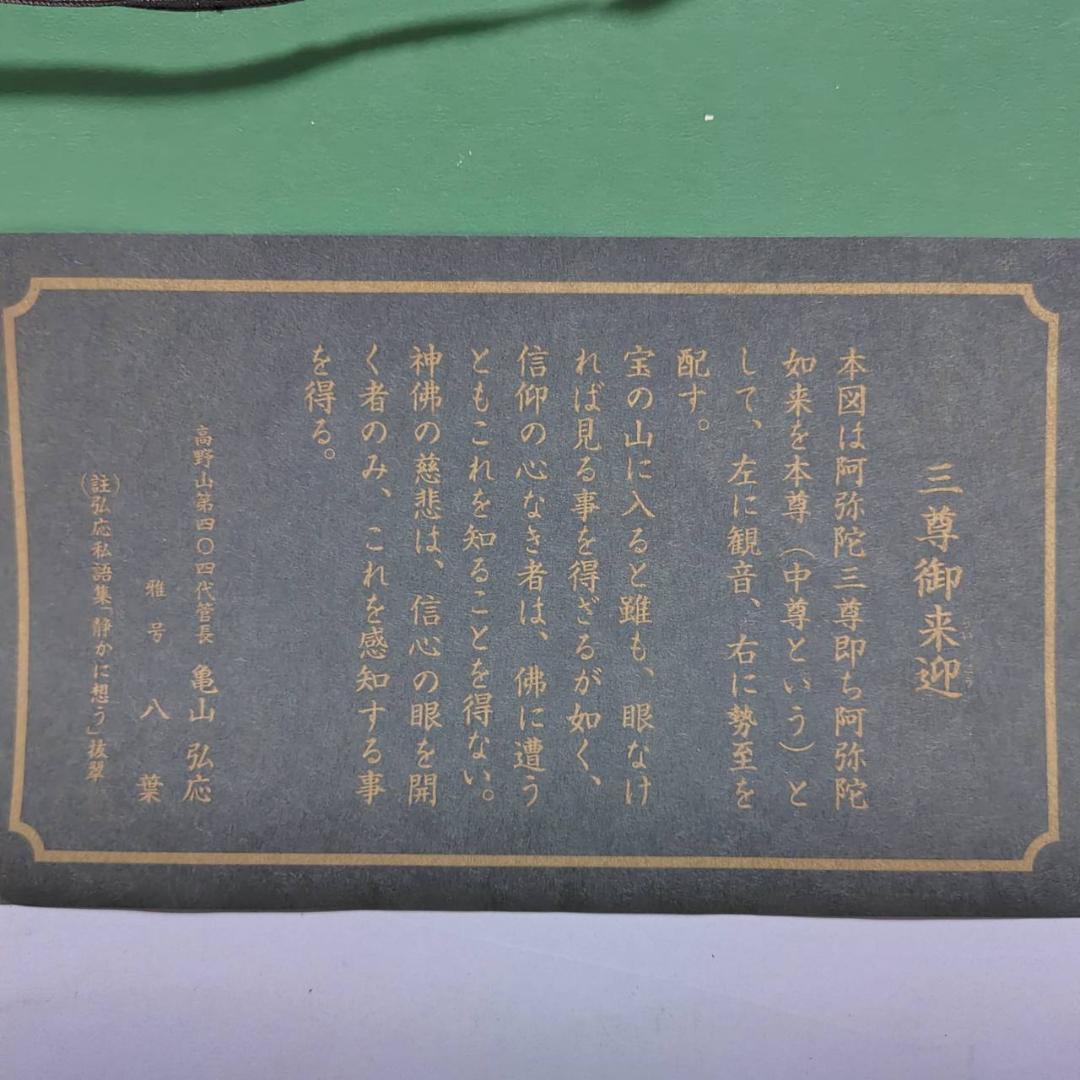 三尊御来迎
本図は阿弥陀三尊即ち阿弥陀
如来を本尊（中尊という）と
して、左に観音、右に勢至を
配す。
宝の山に入ると雖も、眼なけ
れば見る事を得ざるが如く、
信仰の心なき者は、佛に遭う
ともこれを知ることを得ない。
神佛の慈悲は、信心の眼を開
く者のみ、これを感知する事
を得る。
高野山第四〇四代管長 亀山 弘応
雅号 八葉
（註）弘応私語集「静かに想う」抜翠